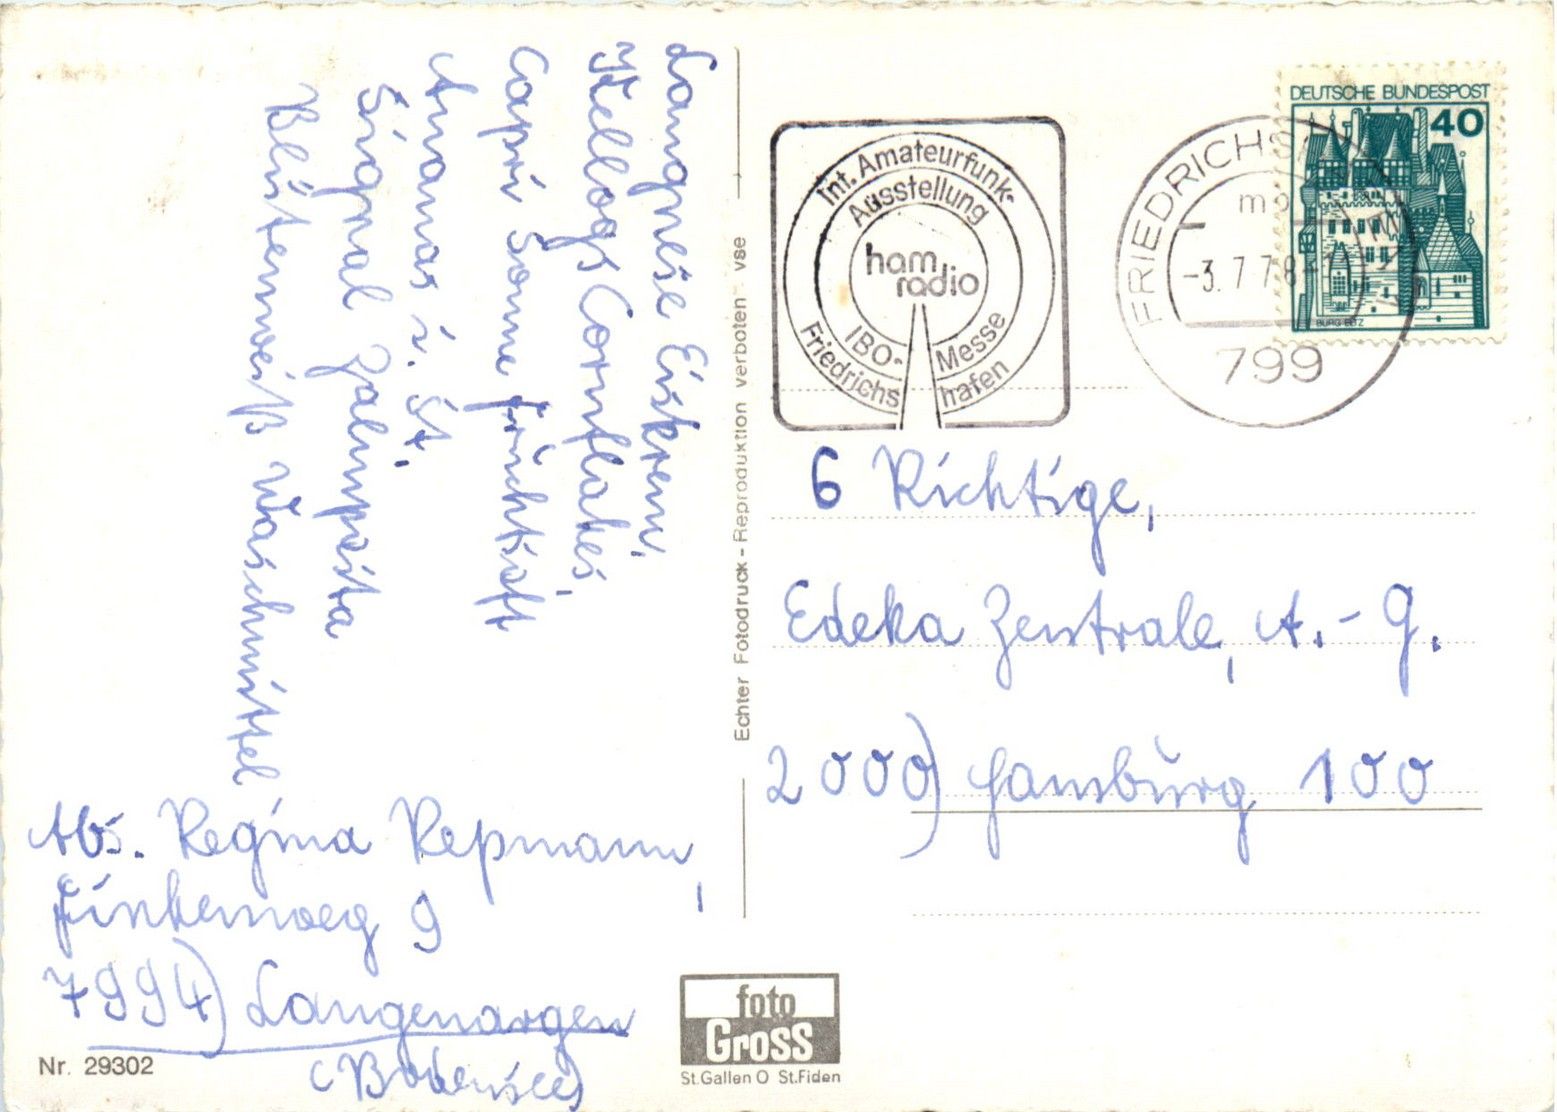 Langnese Eiskrem,
Kellogs Cornflakes,
Capri Sonne Früchtsaft
Ananas i. St.
Signal Zahnpasta
Blütenweiß Waschmittel
Abs. Regina Repmann,
Finkenweg 9
7994) Langenargen
(Bodensee)
Nr. 29302
Echter Fotodruck - Reproduktion verboten - vse
foto
Gross
St.Gallen O St.Fiden
Int. Amateurfunk-
Ausstellung
ham
radio
IBO- Messe
Friedrichs hafen
FRIEDRICHSHAFEN
-3. 7. 78-
799
DEUTSCHE BUNDESPOST
40
BURG ELTZ
6 Richtige,
Edeka Zentrale, A.-G.
2000) Hamburg 100